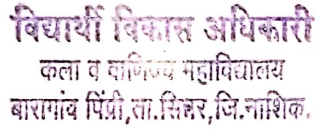 विद्यार्थी विकास अधिकारी
कला व वाणिज्य महाविद्यालय
बारागांव पिंप्री,ता.सिन्नर,जि.नाशिक.